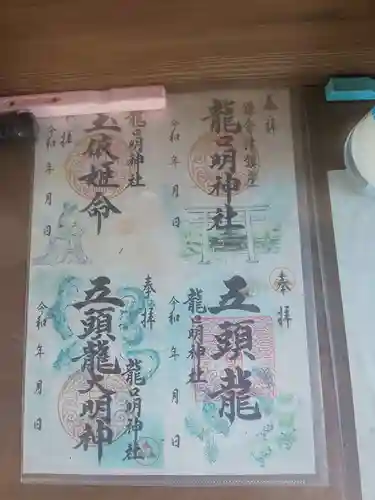 奉拝
鎌倉津鎮座
龍口明神社
令和 年 月 日
龍口明神社
玉依姫命
拝
令和 年 月 日
奉
拝
五頭龍
龍口明神社
令和 年 月 日
奉拝
龍口明神社
五頭龍大明神
令和 年 月 日